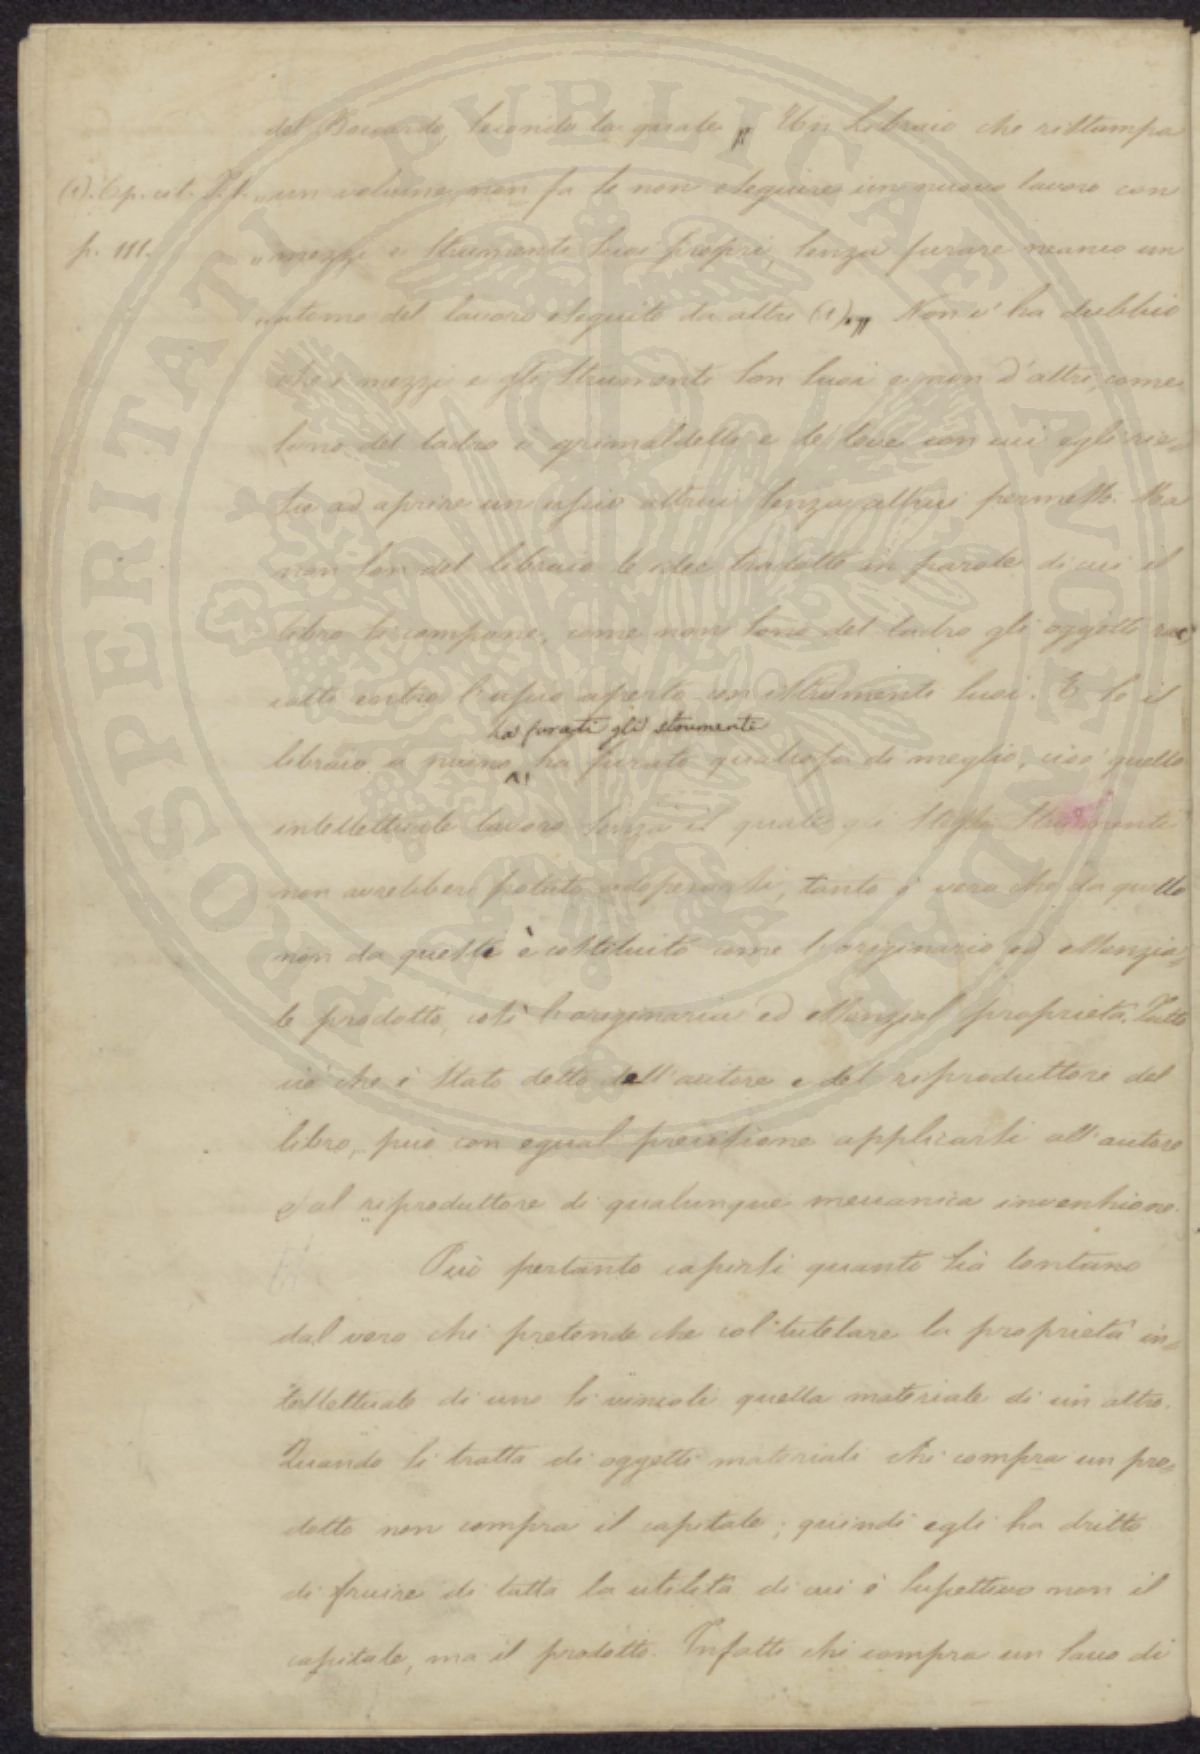 del Boccardo, secondo la quale „ Un libraio che ristampa
(1). Op. cit. T. I. „ un volume, non fa se non eseguire un nuovo lavoro con
p. 111. „ mezzi e strumenti suoi propri, senza furare neanco un
„ atomo del lavoro eseguito da altri (1). „ Non v'ha dubbio
che i mezzi e gli strumenti son suoi e non d'altri, come
sono del ladro i grimaldelli e le leve con cui egli rie=
sce ad aprire un uscio altrui senza altrui permesso. Ma
non son del libraio le idee tradotte in parole di cui il
libro si compone, come non sono del ladro gli oggetti rac=
colti entro l'uscio aperto con istrumenti suoi. E se il
ha furati gli strumenti
libraio a niuno ha furato qualcosa di meglio, cioè quello
intellettuale lavoro senza il quale gli stessi strumenti
non avrebber potuto adoperarsi, tanto è vero che da quello
non da questi è costituito come l'originario ed essenzia=
le prodotto, così l'originaria ed essenzial proprietà. Tutto
ciò che è stato detto dell'autore e del riproduttore del
libro, può con egual precisione applicarsi all'autore
ed al riproduttore di qualunque meccanica invenzione.
Può pertanto capirsi quanto sia lontano
dal vero chi pretende che col tutelare la proprietà in=
tellettuale di uno si vincoli quella materiale di un altro.
Quando si tratta di oggetti materiali chi compra un pro=
dotto non compra il capitale; quindi egli ha dritto
di fruire di tutta la utilità di cui è suscettivo non il
capitale, ma il prodotto. Infatti chi compra un sacco di
PROSPERITATI PVBLICAE AVGENDAE